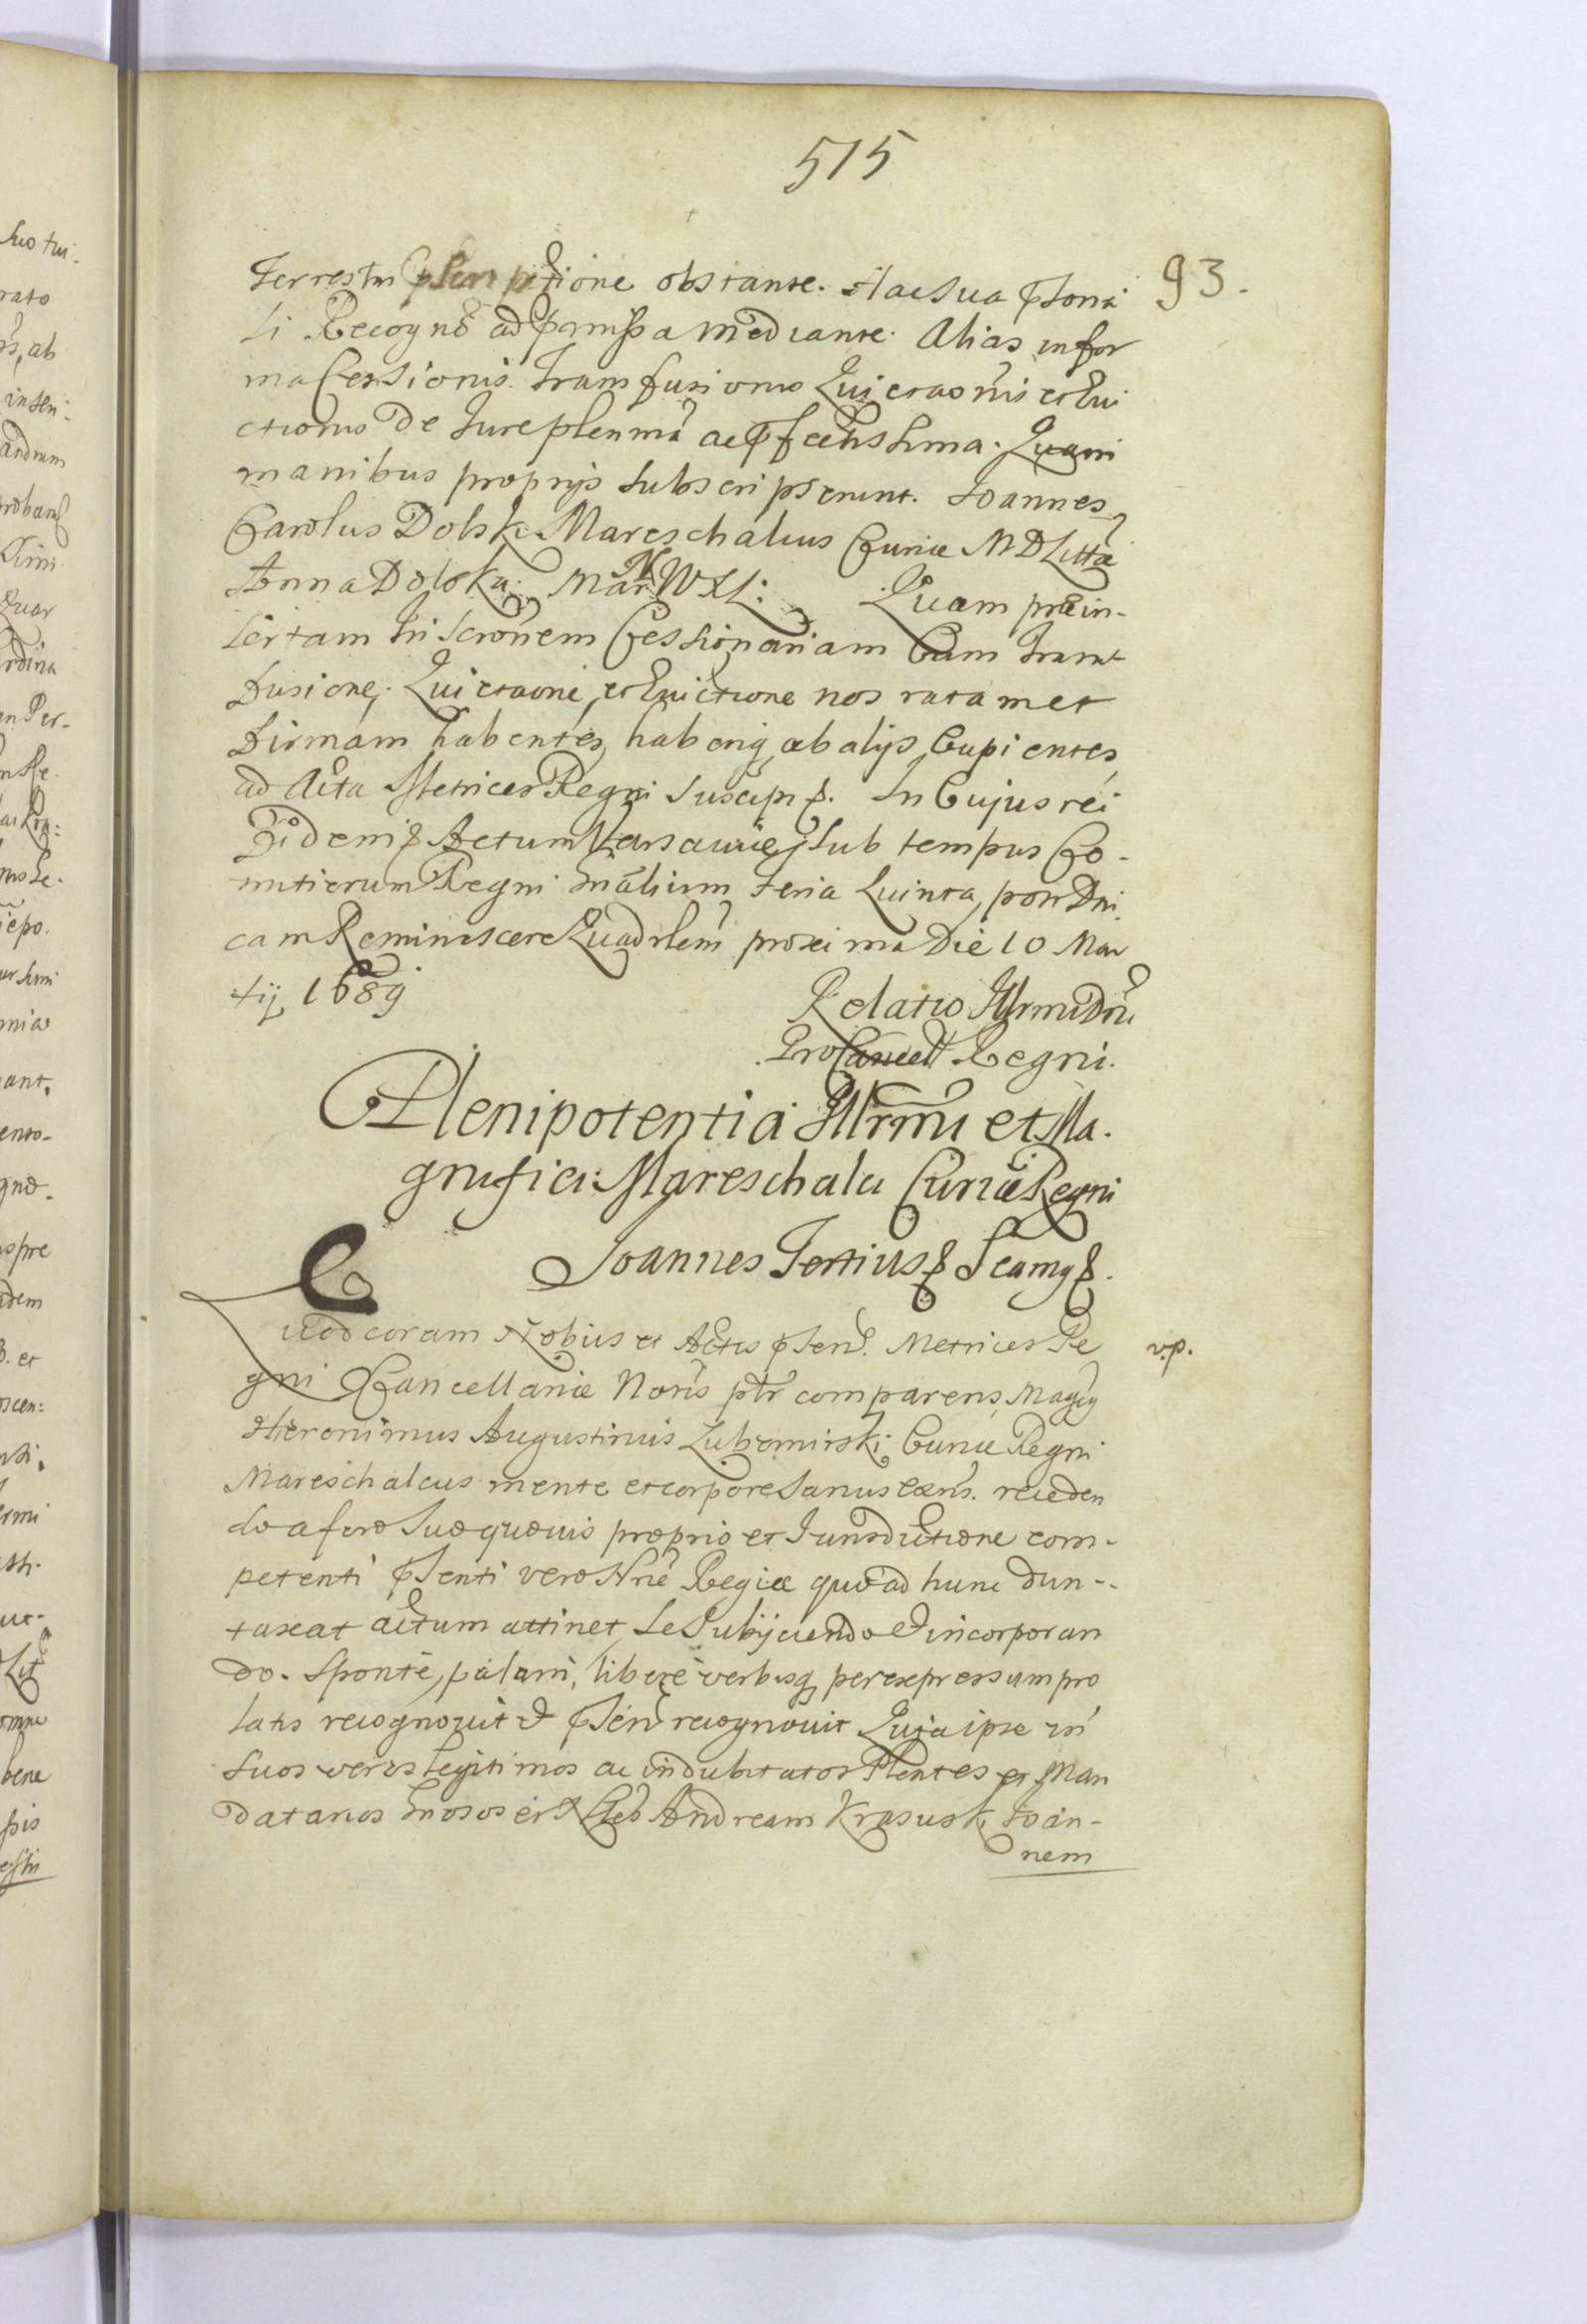 515
93.
Terrestri obstante. Hac sua
li Recogne ad mediante. Alias in for
ma Cessionis. Transfusionis Quietaõnis et Eui
ctionis de Jure plenmã ac Quam
manibus proprijs subscripserunt. Joannes
Carolus Dolski Mareschalcus Curiæ M D Littæ
Anna Dolska. Mar N W X L: Quam præin-
sertam Inscrõnem Cessionariam Cum Trans
fusione, Quietaone, et Euictione nos ratam et
firmam habentes, haberiq ab alijs Cupientes
ad Acta Metrices Regni suscip. In Cujus rei
fidem Actum Varsauiæ sub tempus Co-
mitiorum Regni Gñalium feria Quinta, post Dni
cam Reminiscere Quadrlem proxima Die 10 Mar
tij 1689
Relatio Illrmi Dni
ProCancell Regni.
Plenipotentia Illrmi et Ma.
gnifici Mareschalci Curiæ Regni
Joannes Tertius Scamus
Quod coram Nobis et Actis Metrices Re
v.p.
gni Cancellariæ Noris ptr comparens, Magcg
Hieronimus Augustinus Lubomirski Curiæ Regni
Mareschalcus mente et corpore sanus exñs. receden
do a foro suo quouis proprio et Jurisdictione com-
petenti vero Nrae Regiæ quoad hunc dun-
taxat actum attinet, se subijciendo & incorporan
do. Sponte, palam, libere verbisq per expressum pro
latis recognouit & recognouit Quia ipse in
suos veros legitimos ac indubitatos Plentes et Man
datarios Gnosos et Nles Andream Krasuski Joan-
nem